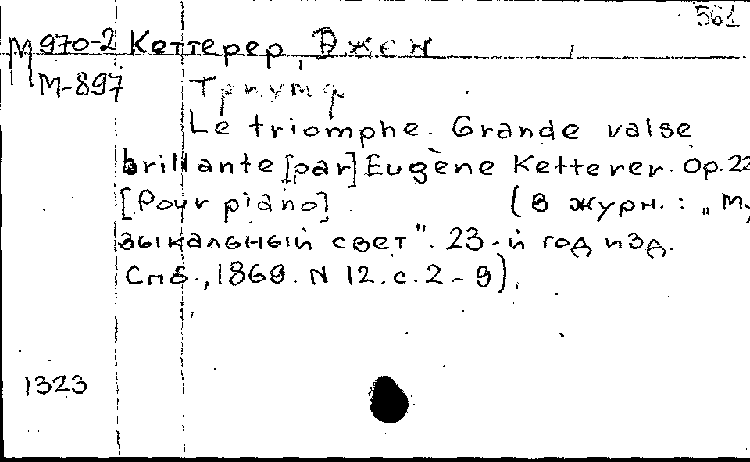 561
М 970-2 Кеттерер, Джен
М-897 Триумф
Le triomphe. Grande valse
brillante [par] Eugène Ketterer. Op.22
[Pour piano]. (В журн.: „Му
зыкальный свет". 23-й год изд.
Спб., 1869. N 12. с. 2-9).
1323